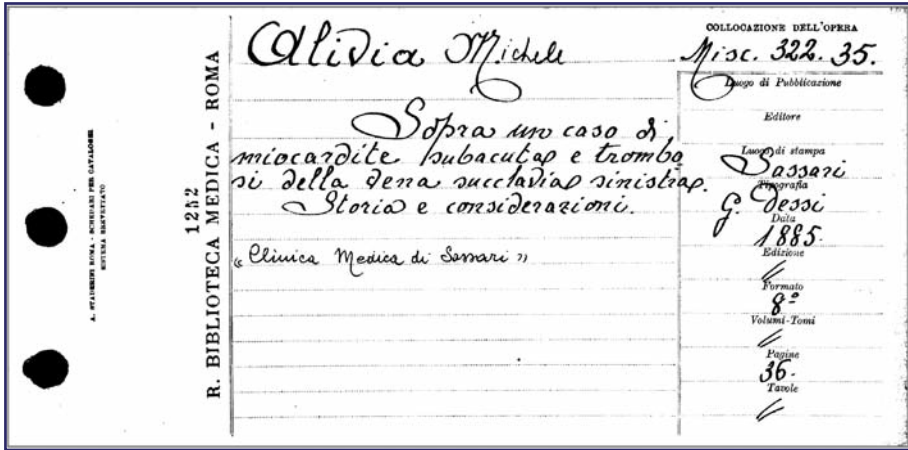 A. STADERINI ROMA - SCHEDARI PER CATALOGHI
SISTEMA BREVETTATO
1252
R. BIBLIOTECA MEDICA - ROMA
Alivia Michele
Sopra un caso di
miocardite subacuta e trombo
si della vena succlavia sinistra.
Storia e considerazioni.
"Clinica Medica di Sassari"
COLLOCAZIONE DELL'OPERA
Misc. 322. 35.
Luogo di Pubblicazione
Editore
Luogo di stampa
Sassari
Tipografia
G. Dessi
Data
1885.
Edizione
//
Formato
8º
Volumi-Tomi
//
Pagine
36.
Tavole
//